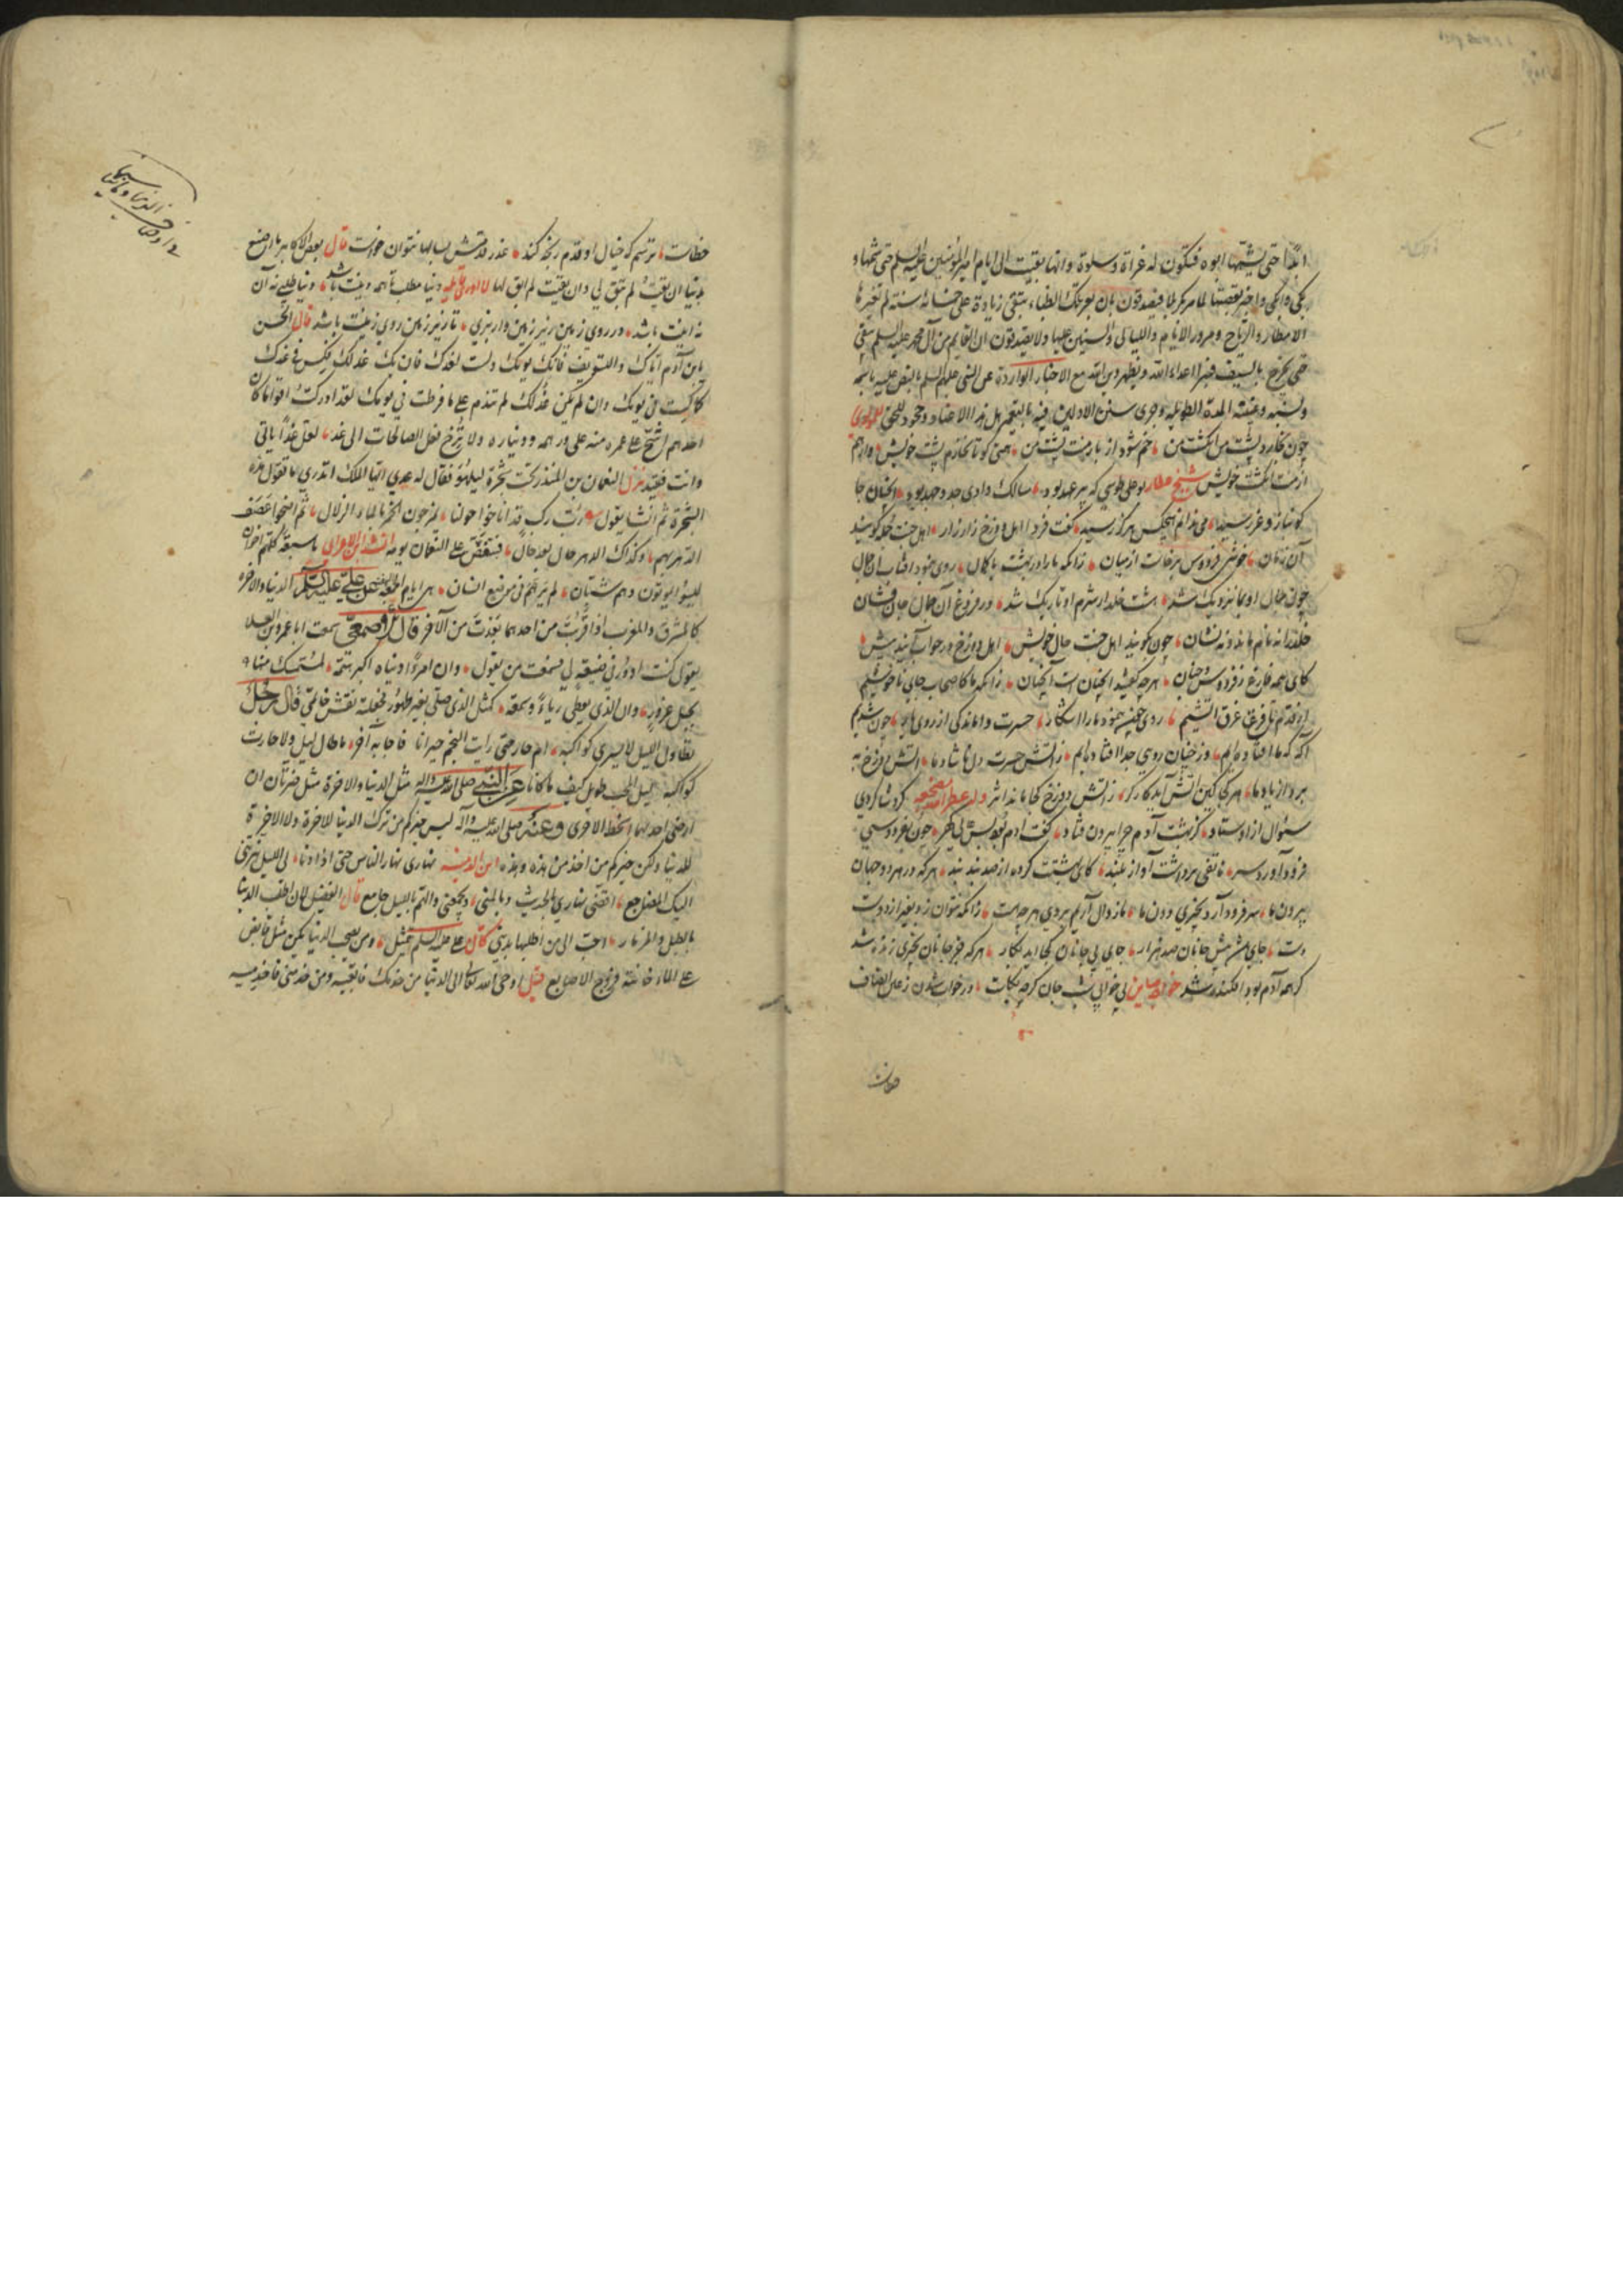 ابدا حتی یشمها ابوه فتکون له عزاة وسلوة وانها بقیت الی ایام امیر المؤمنین علیه السلم حتی شمها و
بکی وابکی واخبر بقصتها لما مر بکربلا فیصدقون بان بعر تلک الظباء تبقی زیادة علی خمسمائة سنة لم تغیرها
الامطار والریاح ومرور الایام واللیالی والسنین علیها ولا یصدقون ان القایم من آل محمد علیه السلم یبقی
حتی یخرج بالسیف فیبیر اعداء الله ویظهر دین الله مع الاخبار الواردة عن النبی علیهم السلم بالنص علیه باسمه
ونسبه وغیبته المدة الطویله وجری سنن الاولین فیه بالتعمیر هل هذا الا عناد وجحود للحق للمولوی
چون نخارد پشت من انگشت من خم شود از بار منت پشت من همتی کو تا نخارم پشت خویش وارهم
از منت انگشت خویش شیخ عطار بوعلی طوسی که پیر عهد بود سالک وادی جد و جهد بود آنچنان جا
کو بناز و عز رسید می ندانم هیچکس هرگز رسید گفت فردا اهل دوزخ زار زار اهل جنت را بگویند
آن زمان خوشی فردوس برخاست از میان زانکه ما را در بهشت با کمال روی بنمود آفتاب آن جمال
چون جمال او بما نزدیک شد هشت خلد از شرم او تاریک شد در فروغ آن جمال جان فشان
خلد را نه نام ماند و نه نشان چون بگویند اهل جنت حال خویش اهل دوزخ در جواب آیند پیش
کای همه فارغ ز فردوس و جنان هرچه گفتید آنچنانست آنچنان زانکه ما کاصحاب جای ناخوشیم
از قدم تا فرق غرق آتشیم روی چون بنمود ما را آشکار حسرت واماندگی از روی یار چون شدیم
آگه که ما افتاده ایم وز چنان روی جدا افتاده ایم ز آتش حسرت دل ناشاد ما آتش دوزخ به
برد از یاد ما هر کجا کین آتش آید کارگر ز آتش دوزخ کجا ماند اثر وله عطر الله مضجعه کرد شاگردی
سؤال از اوستاد کز بهشت آدم چرا بیرون فتاد گفت آدم بود بس عالی گهر چون بفردوسی
فرود آورد سر هاتفی برداشت آواز بلند کای بهشتت کرده از صد بند بند هرکه در هر دو جهان
بیرون ما سر فرود آرد بچیزی دون ما ما زوال آریم بر وی هرچه هست زانکه نتوان زد بغیر از دوست
دست جای باشد پیش جانان صد هزار جای بی جانان کجا آید بکار هرکه جز جانان بچیزی زنده شد
گر همه آدم بود افکنده شد خواجه صاین بی خوابی شب جان کرچه بکاست در خواب شدن ز علی انصاف
خطاست ترسم که خیال او قدم رنجه کند عذر قدمش بسالها نتوان خواست قال بعض الاکابر ما اصنع
بدنیا ان بقیت لم تبق لی وان بقیت لم ابق لها دنیا مطلب تا همه دینت باشد دنیا طلبی نه آن
نه اینت باشد در روی زمین زیر زمین وار بزی تا زیر زمین روی زمینت باشد قال الحسن
یابن آدم ایاک والتسویف فانک بیومک ولست بغدک فان یک غد لک فکس فی غدک
کما کست فی یومک وان لم یکن غد لک لم تندم علی ما فرطت فی یومک لقد ادرکت اقواما کان
احدهم اشح علی عمره منه علی درهمه ودیناره ولا تُرج فعل الصالحات الی غد لعل غدا یاتی
وانت فقید نزل النعمان بن المنذر تحت شجرة لیلهو فقال له عدی ایها الملک اتدری ما تقول هذه
الشجرة ثم انشا یقول رب رکب قد اناخوا حولنا یمزجون الخمر بالماء الزلال ثم اضحوا عصف
الدهر بهم وکذاک الدهر حال بعد حال فتنغص علی النعمان یومه انشد ابن الاعرابی
لیسوا یموتون وهم شتان لم یرهم فی موضع انسان هی ایام الجمعة عن علی علیه السلم الدنیا والاخرة
کالمشرق والمغرب اذا قربت من احدهما بعدت من الآخر قال الاصمعی سمعت ابا عمرو بن العلا
یقول کنت ادور فی ضیعة لی فسمعت من یقول وان امرءا دنیاه اکبر همه لمستمسک منها
بحبل غرور وان الذی یعطی ریاء وسمعة کمثل الذی صلی بغیر طهور فجعلته نقش خاتمی قال رجل
تطاول اللیل لا تسری کواکبه ام حار حتی رایت النجم حیرانا فاجابه آخر ما طال لیل ولا حارت
کواکبه لیل المحب طویل کیف ما کانا عن النبی صلی الله علیه واله مثل الدنیا والاخرة مثل ضرتان ان
ارضی احدیهما اسخط الاخری وعنه صلی الله علیه وآله لیس خیرکم من ترک الدنیا للاخرة ولا الاخرة
للدنیا ولکن خیرکم من اخذ من هذه وهذه ابن الدمینه نهاری نهار الناس حتی اذا دنا لی اللیل هزتنی
الیک المضاجع اقضی نهاری بالحدیث وبالمنی ویجمعنی والهم باللیل جامع قال الفضیل لان اطلب الدنیا
بالطبل والمزمار احب الی من اطلبها بدینی کان علی علیه السلم یتمثل ومن یصحب الدنیا یکن مثل قابض
علی الماء خانته فروج الاصابع قیل اوحی الله تعالی الی الدنیا من خدمک فاتعبیه ومن خدمنی فاخدمیه